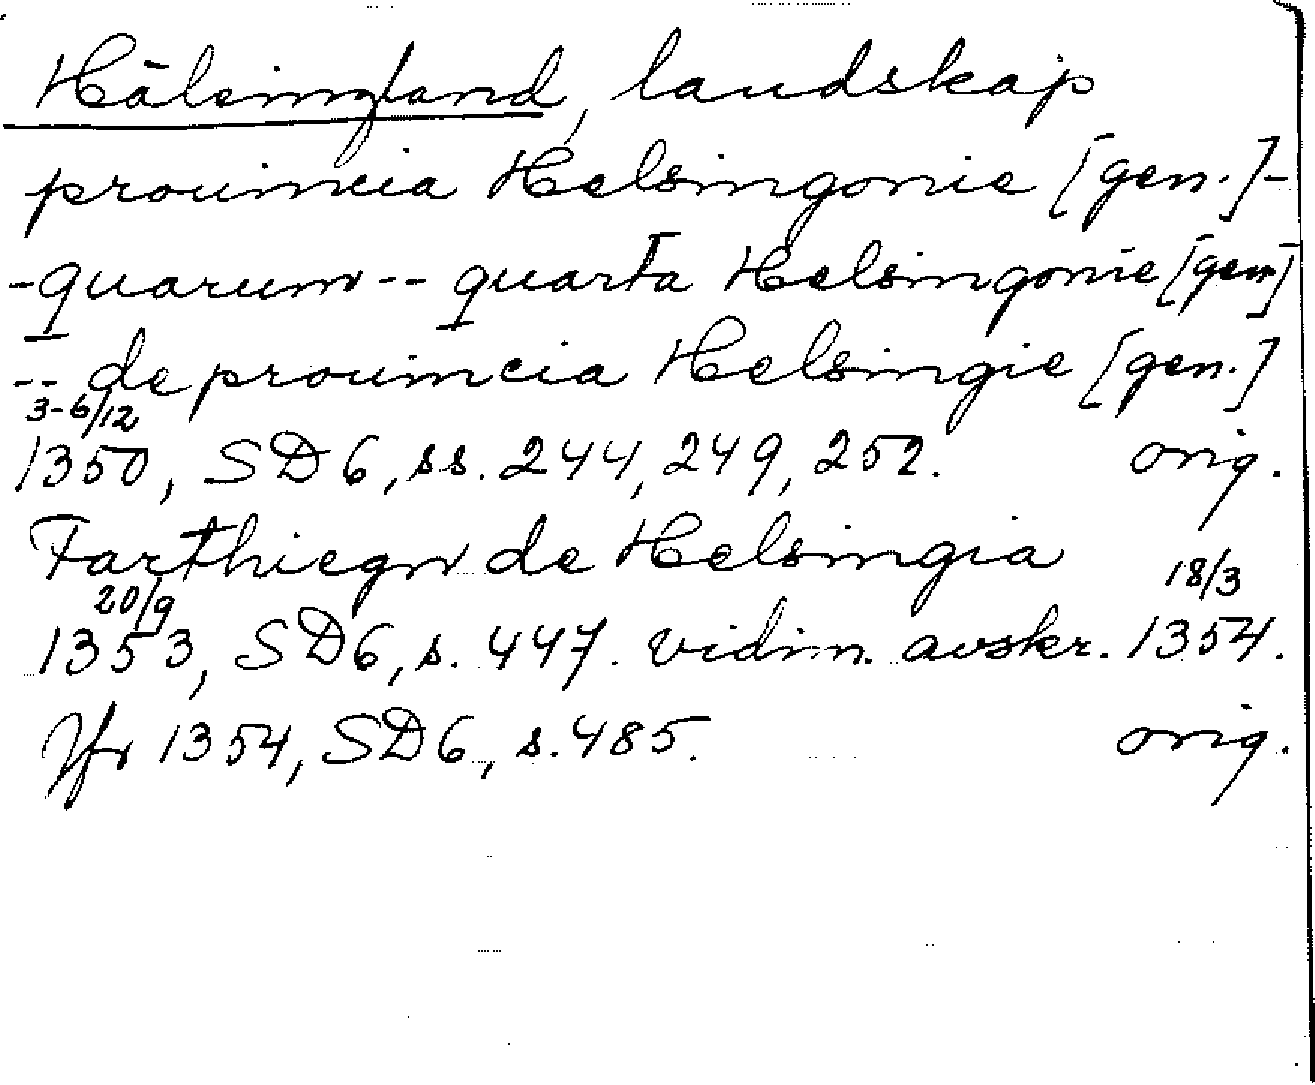 Hälsingland, landskap
prouincia Helsingonie [gen.]-
-quarum -- quarta Helsingonie [gen.]
-- de prouincia Helsingie [gen.]
3-6/12
1350, SD6, ss. 244, 249, 252. orig.
Farthiegn de Helsingia
20/9 18/3
1353, SD6, s. 447. vidim. avskr. 1354.
Jfr 1354, SD6, s. 485. orig.